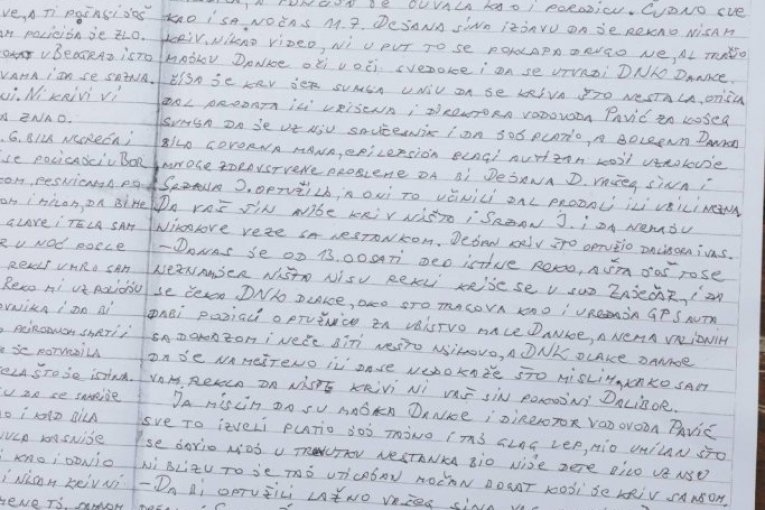 VE, A TI POČASI JOŠ
M. POLICIJA JE ZLO.
U BEOGRAD ISTO
VAMA I DA SE SAZNA.
NI. NI KRIVI VI
A ZNAO.
G. BILA NESREĆA I
SE POLICAJCI U BOR
OM, PESNICAMA PO
OM I MILOM, DA BI ME
GLAVE I TELA SAM
R U NOĆ POSLE
REKLI UMRO SAM
REKO MI UZ POLICIJU
OVNIKA I DA BI
PRIRODNOM SMRTI I
JE POTVRDILA
TELA ŠTO JE ISTINA.
IU DA SE SAKRIJE
O I KAD BILA
NULA KASNIJE
KAO I ODNIO
I NISAM KRIV NI
A FUNKCIJA SE ČUVALA KAO I PORODICU. ČUDNO SVE
KAO I SA NOĆAS 11.7. DEJANA SINA IZJAVU DA JE REKAO NISAM
KRIV. NIKAD VIDEO, NI U PUT TO SE POKLAPA DRUGO NE, AL TRAŽIO
MAJKU DANKE OČI U OČI SVEDOKE I DA SE UTVRDI DNK DANKE.
ČIJA JE KRV JER SUMNJA U NJU DA SE KRIVA ŠTO NESTALA, OTIŠLA
DAL PRODATA ILI UBIJENA I DIREKTORA VODOVODA PAVIĆ ZA KOJEG
SUMNJA DA JE UZ NJU SAUČESNIK I DA JOŠ PLATIO, A BOLESNA DANKA
BILA GOVORNA MANA, EPILEPSIJA BLAGI AUTIZAM KOJI UZROKUJE
MNOGE ZDRAVSTVENE PROBLEME DA BI DEJANA D. VAŠEG SINA I
SRDANA J. OPTUŽILA, A ONI TO UČINILI DAL PRODALI ILI UBILI NEZNA.
DA VAŠ SIN NIJE KRIV NIŠTA I SRDAN J. I DA NEMAJU
NIKAKVE VEZE SA NESTANKOM. DEJAN KRIV ŠTO OPTUŽIO DALIBORA I VAS.
– DANAS JE OD 13.00 SATI DEO ISTINE REKO, A ŠTA JOŠ TO SE
NEZNA, JER NIŠTA NISU REKLI KRIJE SE U SUD ZAJEČAR, I DA
SE ČEKA DNK DLAKE, OKO STO TRAGOVA KAO I UREĐAJA GPS AUTA
DA BI PODIGLI OPTUŽNICU ZA UBISTVO MALE DANKE, A NEMA VALIDNIH
SA DOKAZOM I NEĆE BITI NEŠTO NJIHOVO, A DNK DLAKE DANKE
DA JE NAMEŠTENO ILI DA SE NEDOKAŽE ŠTO MISLIM, KAKO SAM
VAM, REKLA DA NISTE KRIVI NI VAŠ SIN POKOJNI DALIBOR.
JA MISLIM DA SU MAJKA DANKE I DIREKTOR VODOVODA PAVIĆ
SVE TO IZVELI PLATIO JOŠ TAJNO I TAJ GLAS LEP, MIO UMILAN ŠTO
SE JAVIO NJOJ U TRENUTKU NESTANKA BIO NIJE DETE BILO UZ NJU
NI BLIZU TO JE TAJ UTICAJAN MOĆAN BOGAT KOJI JE KRIV SA NJOM.
– DA BI OPTUŽILI LAŽNO VAŠEG SINA